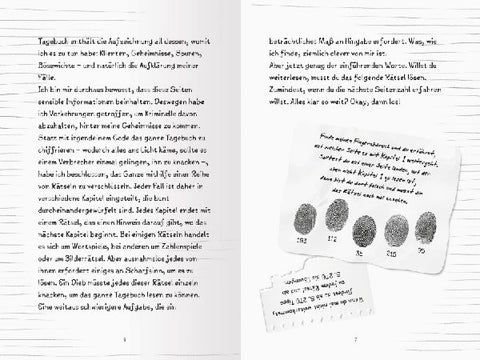 Tagebuch enthält die Aufzeichnung all dessen, womit
ich es zu tun habe: Klienten, Geheimnisse, Spuren,
Bösewichte – und natürlich die Aufklärung meiner
Fälle.
Ich bin mir durchaus bewusst, dass diese Seiten
sensible Informationen beinhalten. Deswegen habe
ich Vorkehrungen getroffen, um Kriminelle davon
abzuhalten, hinter meine Geheimnisse zu kommen.
Statt mit irgendeinem Code das ganze Tagebuch zu
chiffrieren – wodurch alles ans Licht käme, sollte es
einem Verbrecher einmal gelingen, ihn zu knacken –,
habe ich beschlossen, das Ganze mithilfe einer Reihe
von Rätseln zu verschlüsseln. Jeder Fall ist daher in
verschiedene Kapitel eingeteilt, die bunt
durcheinandergewürfelt sind. Jedes Kapitel endet mit
einem Rätsel, das einen Hinweis darauf gibt, wo das
nächste Kapitel beginnt. Bei einigen Rätseln handelt
es sich um Wortspiele, bei anderen um Zahlenspiele
oder um Bilderrätsel. Aber ausnahmslos jedes von
ihnen erfordert einiges an Scharfsinn, um es zu
lösen. Ein Dieb müsste jedes dieser Rätsel einzeln
knacken, um das ganze Tagebuch lesen zu können.
Eine weitaus schwierigere Aufgabe, die ein
6
beträchtliches Maß an Hingabe erfordert. Was, wie
ich finde, ziemlich clever von mir ist.
Aber jetzt genug der einführenden Worte. Willst du
weiterlesen, musst du das folgende Rätsel lösen.
Zumindest, wenn du die nächste Seitenzahl erfahren
willst. Alles klar so weit? Okay, dann los!
Finde meinen Fingerabdruck und du erfährst,
auf welcher Seite es mit Kapitel 1 weitergeht.
Landest du auf einer Seite landen, auf der
aber nicht Kapitel 1 zu lesen ist,
dann bist du dort falsch und musst dir
das Rätsel noch mal ansehen.
112
35
215
95
Wenn du nicht weiterkommst,
findest du ab S. 270 Tipps
zu jedem Rätsel und ab
7